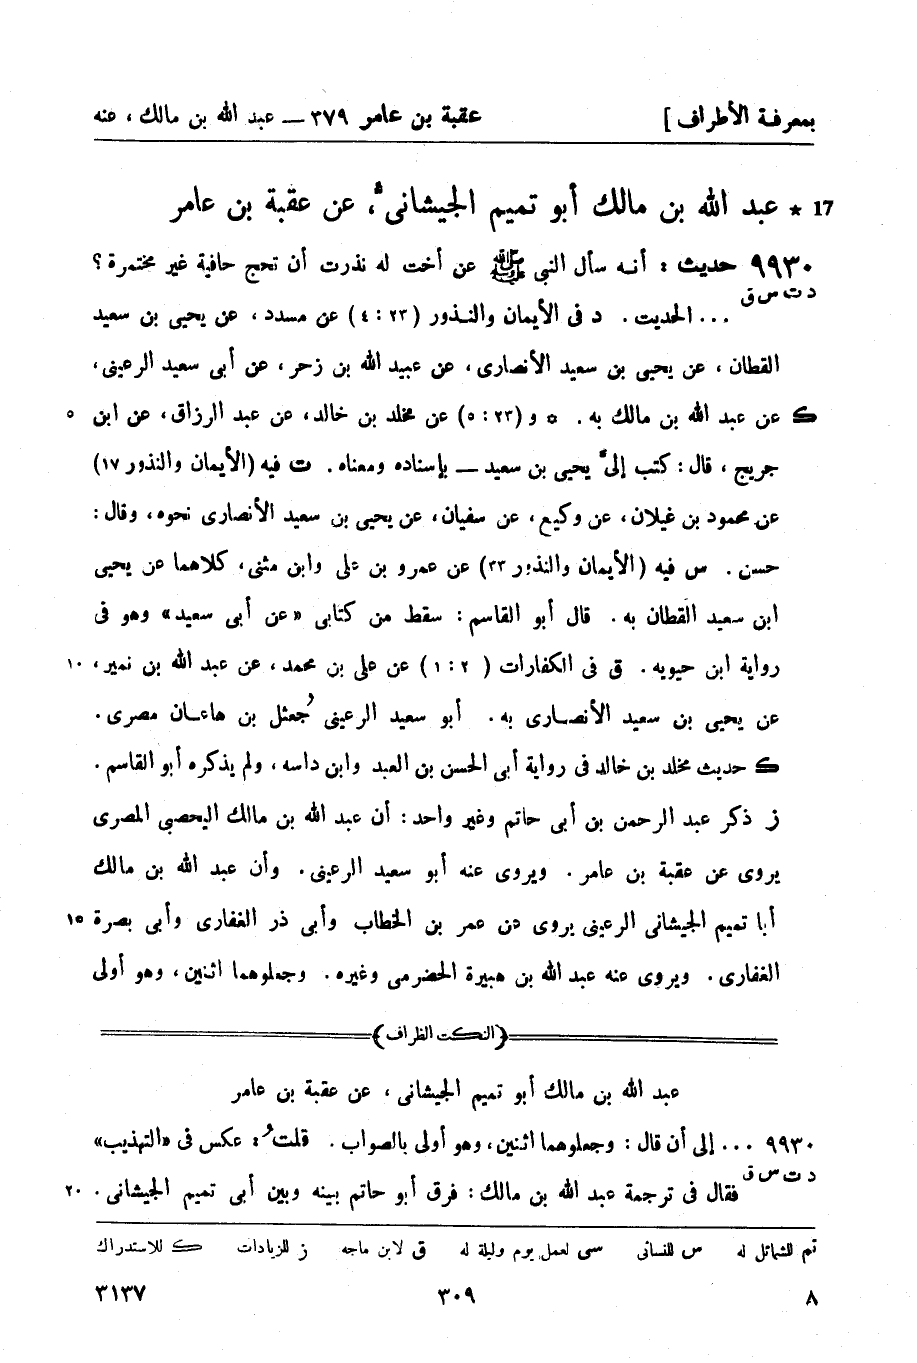 بمعرفة الأطراف ] عقبة بن عامر ٣٧٩ ــ عبد الله بن مالك ، عنه
17 * عبد الله بن مالك أبو تميم الجيشانى ، عن عقبة بن عامر
٩٩٣٠ حديث : أنه سأل النبى ﷺ عن أخت له نذرت أن تحج حافية غير مختمرة ؟
د ت س ق ... الحديث . د فى الأيمان والنذور (٢٣ : ٤) عن مسدد ، عن يحيى بن سعيد
القطان ، عن يحيى بن سعيد الأنصارى ، عن عبيد الله بن زحر ، عن أبى سعيد الرعينى ،
ك عن عبد الله بن مالك به . * و (٢٣ : ٥) عن مخلد بن خالد ، عن عبد الرزاق ، عن ابن ٥
جريج ، قال : كتب إلىّ يحيى بن سعيد ــ بإسناده ومعناه . ت فيه (الأيمان والنذور ١٧)
عن محمود بن غيلان ، عن وكيع ، عن سفيان ، عن يحيى بن سعيد الأنصارى نحوه ، وقال :
حسن . س فيه (الأيمان والنذور ٣٣) عن عمرو بن على وابن مثنى ، كلاهما عن يحيى
ابن سعيد القطان به . قال أبو القاسم : سقط من كتابى «عن أبى سعيد» وهو فى
رواية ابن حيويه . ق فى الكفارات ( ٢ : ١) عن على بن محمد ، عن عبد الله بن نمير ، ١٠
عن يحيى بن سعيد الأنصارى به . أبو سعيد الرعينى جُعثل بن هاعان مصرى .
ك حديث مخلد بن خالد فى رواية أبى الحسن بن العبد وابن داسه ، ولم يذكره أبو القاسم .
ز ذكر عبد الرحمن بن أبى حاتم وغير واحد : أن عبد الله بن مالك اليحصبى المصرى
يروى عن عقبة بن عامر . ويروى عنه أبو سعيد الرعينى . وأن عبد الله بن مالك
أبا تميم الجيشانى الرعينى يروى عن عمر بن الخطاب وأبى ذر الغفارى وأبى بصرة ١٥
الغفارى . ويروى عنه عبد الله بن هبيرة الحضرمى وغيره . وجعلوهما اثنين ، وهو أولى
(النكت الظراف)
عبد الله بن مالك أبو تميم الجيشانى ، عن عقبة بن عامر
٩٩٣٠ ... إلى أن قال : وجعلوهما اثنين ، وهو أولى بالصواب . قلتُ : عكس فى «التهذيب»
د ت س ق فقال فى ترجمة عبد الله بن مالك : فرق أبو حاتم بينه وبين أبى تميم الجيشانى . ٢٠
تم للشمائل له س للنسائى سى لعمل يوم وليلة له ق لابن ماجه ز للزيادات ك للاستدراك
٨ ٣٠٩ ٣١٣٧